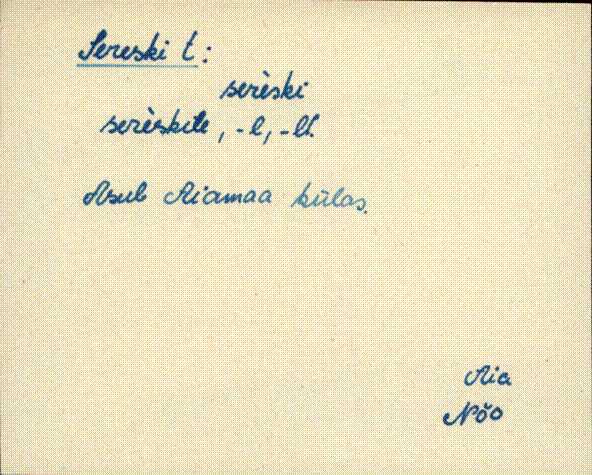 Sereski t:
serèski
serèskile, -l, -lt.
Asub Aiamaa külas.
Aia
Nõo